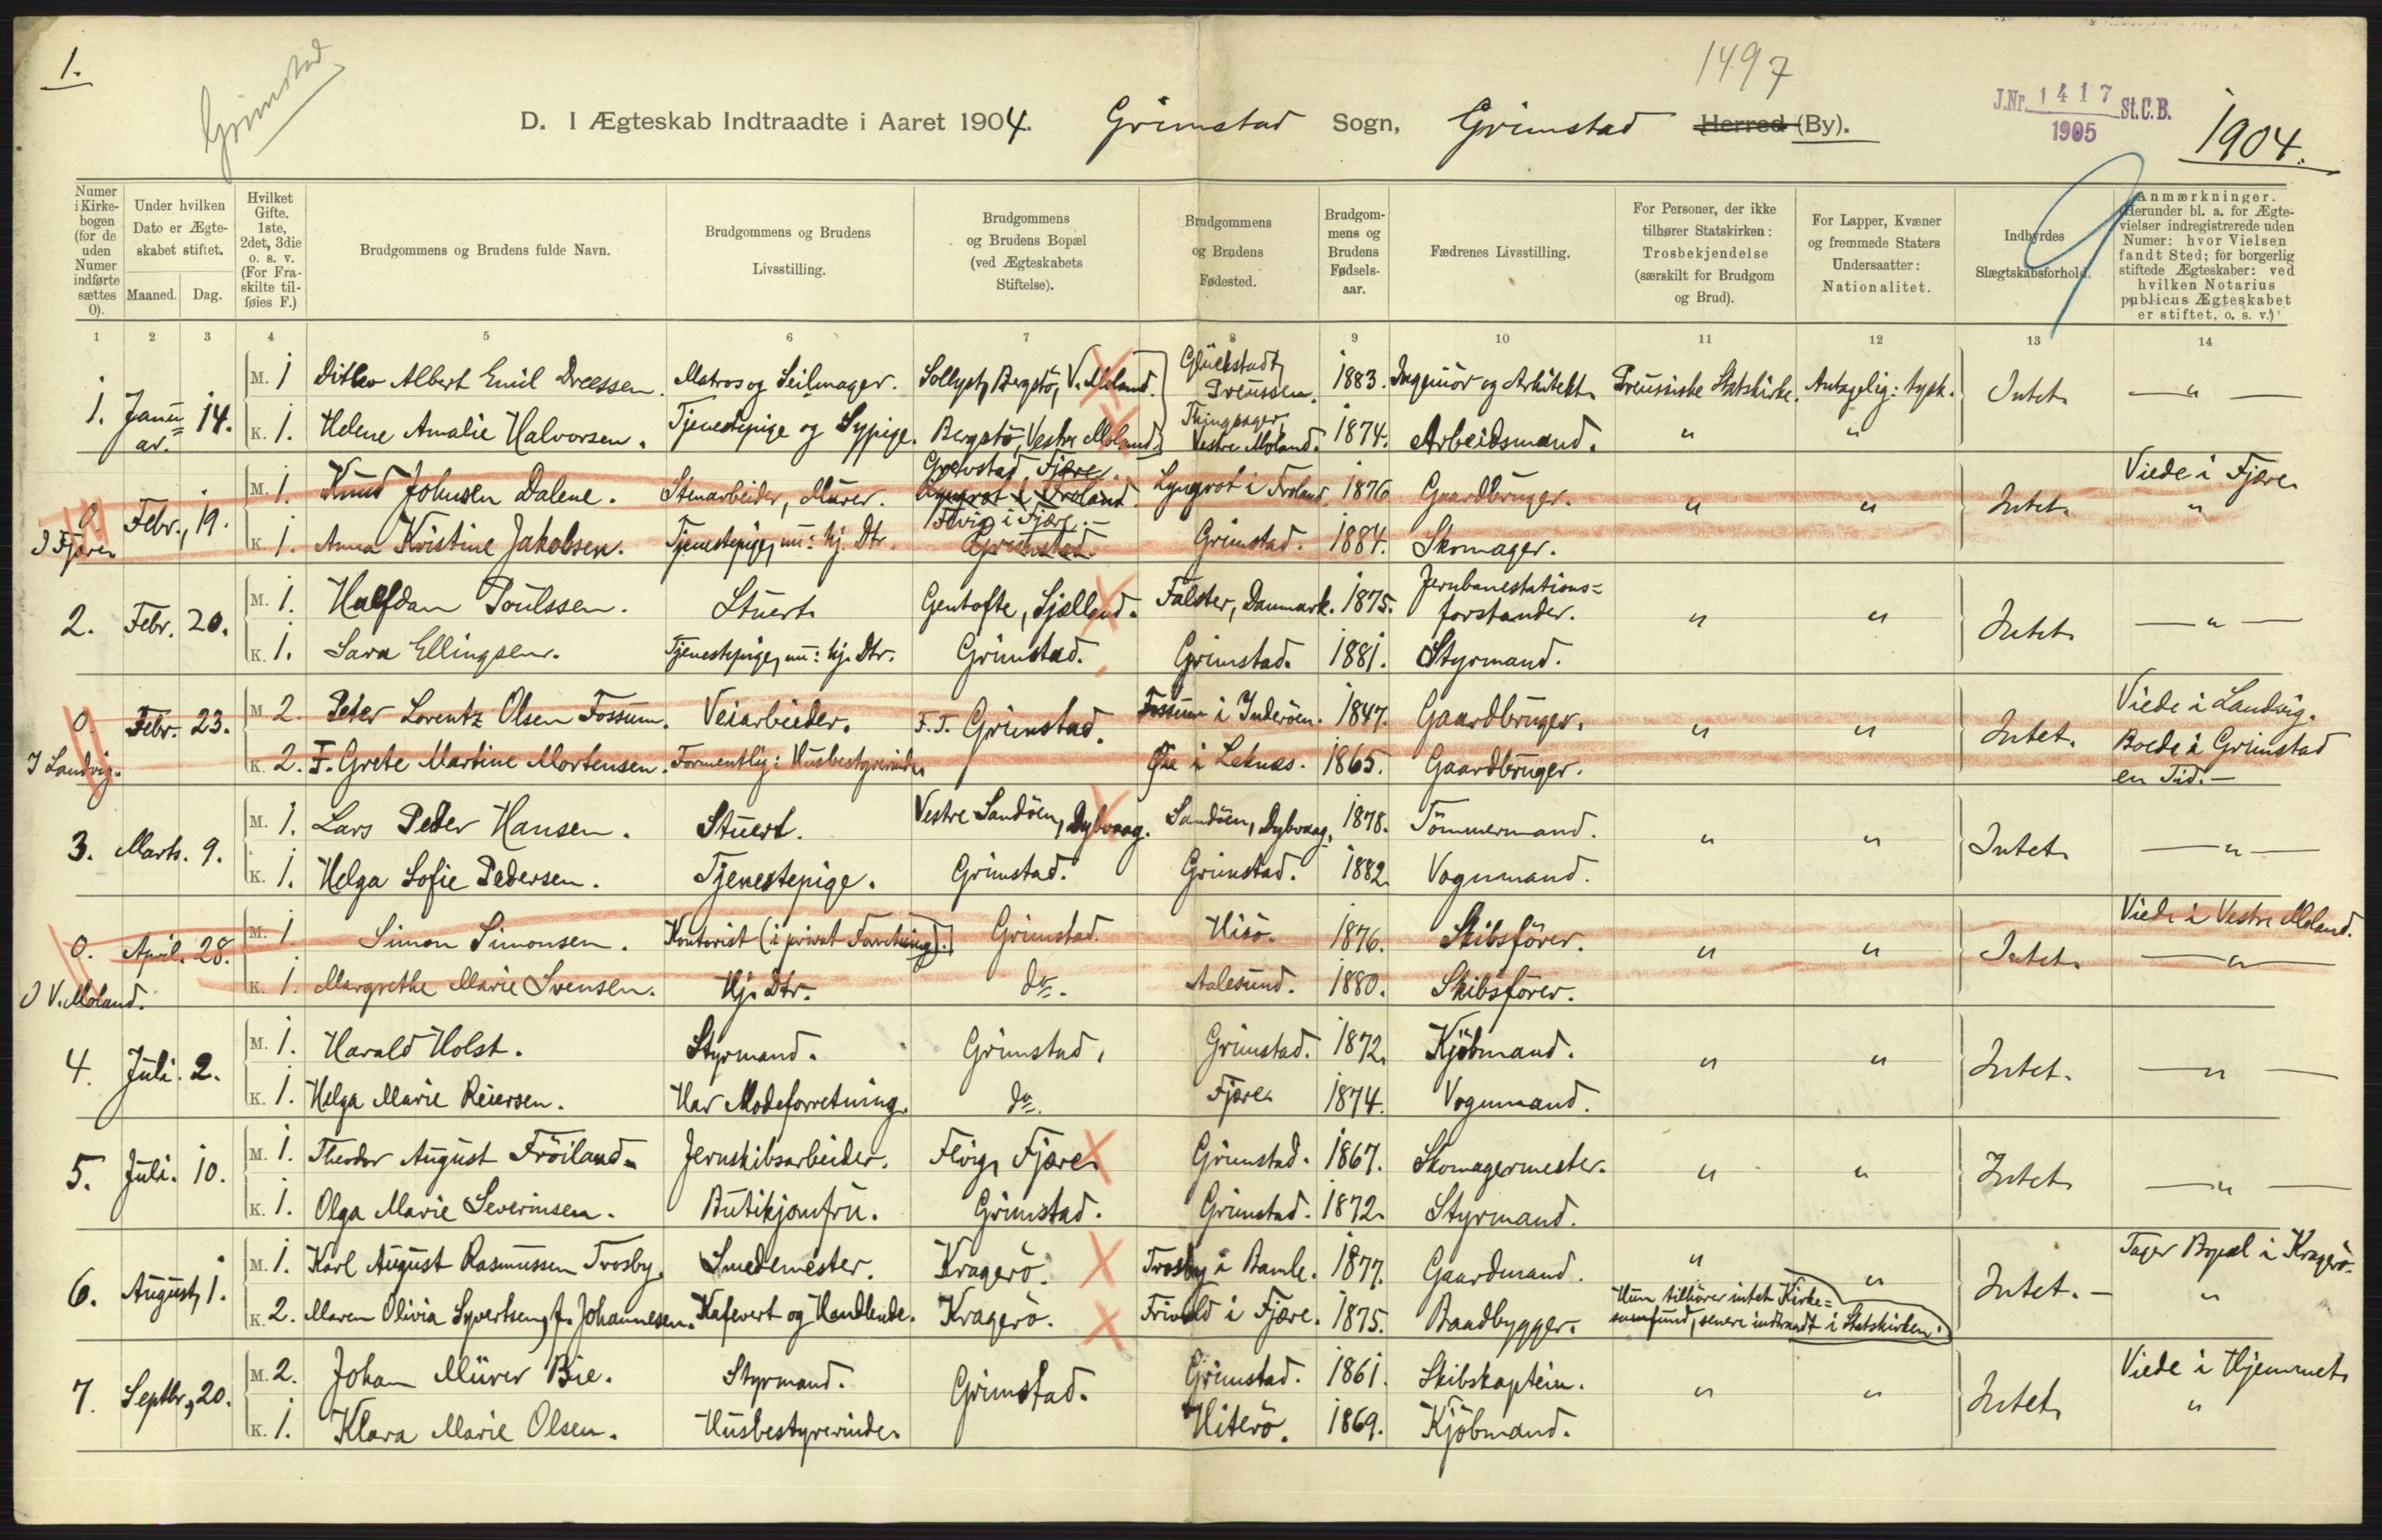 1.
Grimstad
1497
D. I Ægteskab Indtraadte i Aaret 1904. Grimstad Sogn, Grimstad Herred (By).
J.Nr. 1417 St.C.B.
1905
1904.
Numer i Kirkebogen (for de uden Numer indførte sættes 0).
Under hvilken Dato er Ægteskabet stiftet.
Maaned. Dag.
Hvilket Gifte. 1ste, 2det, 3die o. s. v. (For Fraskilte tilføies F.)
Brudgommens og Brudens fulde Navn.
Brudgommens og Brudens Livsstilling.
Brudgommens og Brudens Bopæl (ved Ægteskabets Stiftelse).
Brudgommens og Brudens Fødested.
Brudgommens og Brudens Fødselsaar.
Fædrenes Livsstilling.
For Personer, der ikke tilhører Statskirken: Trosbekjendelse (særskilt for Brudgom og Brud).
For Lapper, Kvæner og fremmede Staters Undersaatter: Nationalitet.
Indbyrdes Slægtskabsforhold.
Anmærkninger. Herunder bl. a. for Ægtevielser indregistrerede uden Numer: hvor Vielsen fandt Sted; for borgerlig stiftede Ægteskaber: ved hvilken Notarius publicus Ægteskabet er stiftet, o. s. v.)
1 2 3 4 5 6 7 8 9 10 11 12 13 14
1. Januar. 14. M. 1 Ditlev Albert Emil Dreessen. Matros og Seilmager. Sollyst, Bergstø, V. Moland. Glückstadt, Preussen. 1883. Ingeniör og Arkitekt. Preussiske Statskirke. Antagelig: tysk. Intet. — " —
K. 1. Helene Amalie Halvorsen. Tjenestepige og Sypige. Bergstö, Vestre Moland. Thingsager, Vestre Moland. 1874. Arbeidsmand. " "
0. I Fjære. Febr. 19. M. 1. Knud Johnsen Dalene. Stenarbeider, Murer. Grevstad, Fjære. Lyngrot i Froland. Lyngrot i Froland. 1876 Gaardbruger. " " Intet. Viede i Fjære.
K. 1. Anna Kristine Jakobsen. Tjenestepige, nu: hj. Dtr. Fevig i Fjære. Grimstad. Grimstad. 1884. Skomager. "
2. Febr. 20. M. 1. Halfdan Poulssen. Stuert. Gentofte, Sjælland. Falster, Danmark. 1875. Jernbanestations=forstander. " " Intet. — " —
K. 1. Sara Ellingsen. Tjenestepige, nu: hj. Dtr. Grimstad. Grimstad. 1881. Styrmand.
0. I Landvig. Febr. 23. M. 2. Peter Lorentz Olsen Fossum. Veiarbeider. F.T. Grimstad. Fossum i Inderöen. 1847. Gaardbruger. " " Intet. Viede i Landvig.
K. 2. F. Grete Martine Mortensen. Formentlig: Husbestyrerinde. Øie i Leknes. 1865. Gaardbruger. Boede i Grimstad en Tid. —
3. Marts. 9. M. 1. Lars Peder Hansen. Stuert. Vestre Sandöen, Dybvaag. Sandöen, Dybvaag. 1878. Tömmermand. " " Intet. — " —
K. 1. Helga Sofie Pedersen. Tjenestepige. Grimstad. Grimstad. 1882. Vognmand.
0. I V. Moland. April. 28. M. 1 Simon Simonsen. Kontorist (i privat Forretning). Grimstad. Hisö. 1876. Skibsförer. " " Intet. Viede i Vestre Moland.
K. 1. Margrethe Marie Svensen. Hj. Dtr. do. Aalesund. 1880. Skibsförer. — " —
4. Juli. 2. M. 1. Harald Holst. Styrmand. Grimstad. Grimstad. 1872. Kjöbmand. " " Intet. — " —
K. 1. Helga Marie Reiersen. Har Modeforretning. do. Fjære. 1874. Vognmand.
5. Juli. 10. M. 1. Theodor August Fröiland. Jernskibsarbeider. Fevig, Fjære. Grimstad. 1867. Skomagermester. " " Intet. — " —
K. 1. Olga Marie Severinsen. Butikjomfru. Grimstad. Grimstad. 1872. Styrmand.
6. August, 1. M. 1. Karl August Rasmussen Trosby. Smedemester. Kragerö. Trosby i Bamle. 1877. Gaardmand. " " Intet. — Tager Bopæl i Kragerö.
K. 2. Maren Olivia Syvertsen, f. Johannesen. Kafevert og Handlende. Kragerö. Frivold i Fjære. 1875. Baadbygger. Hun tilhörer intet Kirke=samfund, senere indtraadt i Statskirken. "
7. Septbr. 20. M. 2. Johan Mürer Bie. Styrmand. Grimstad. Grimstad. 1861. Skibskaptein. " " Intet. Viede i Hjemmet.
K. 1. Klara Marie Olsen. Husbestyrerinde. Hiterö. 1869. Kjöbmand. "